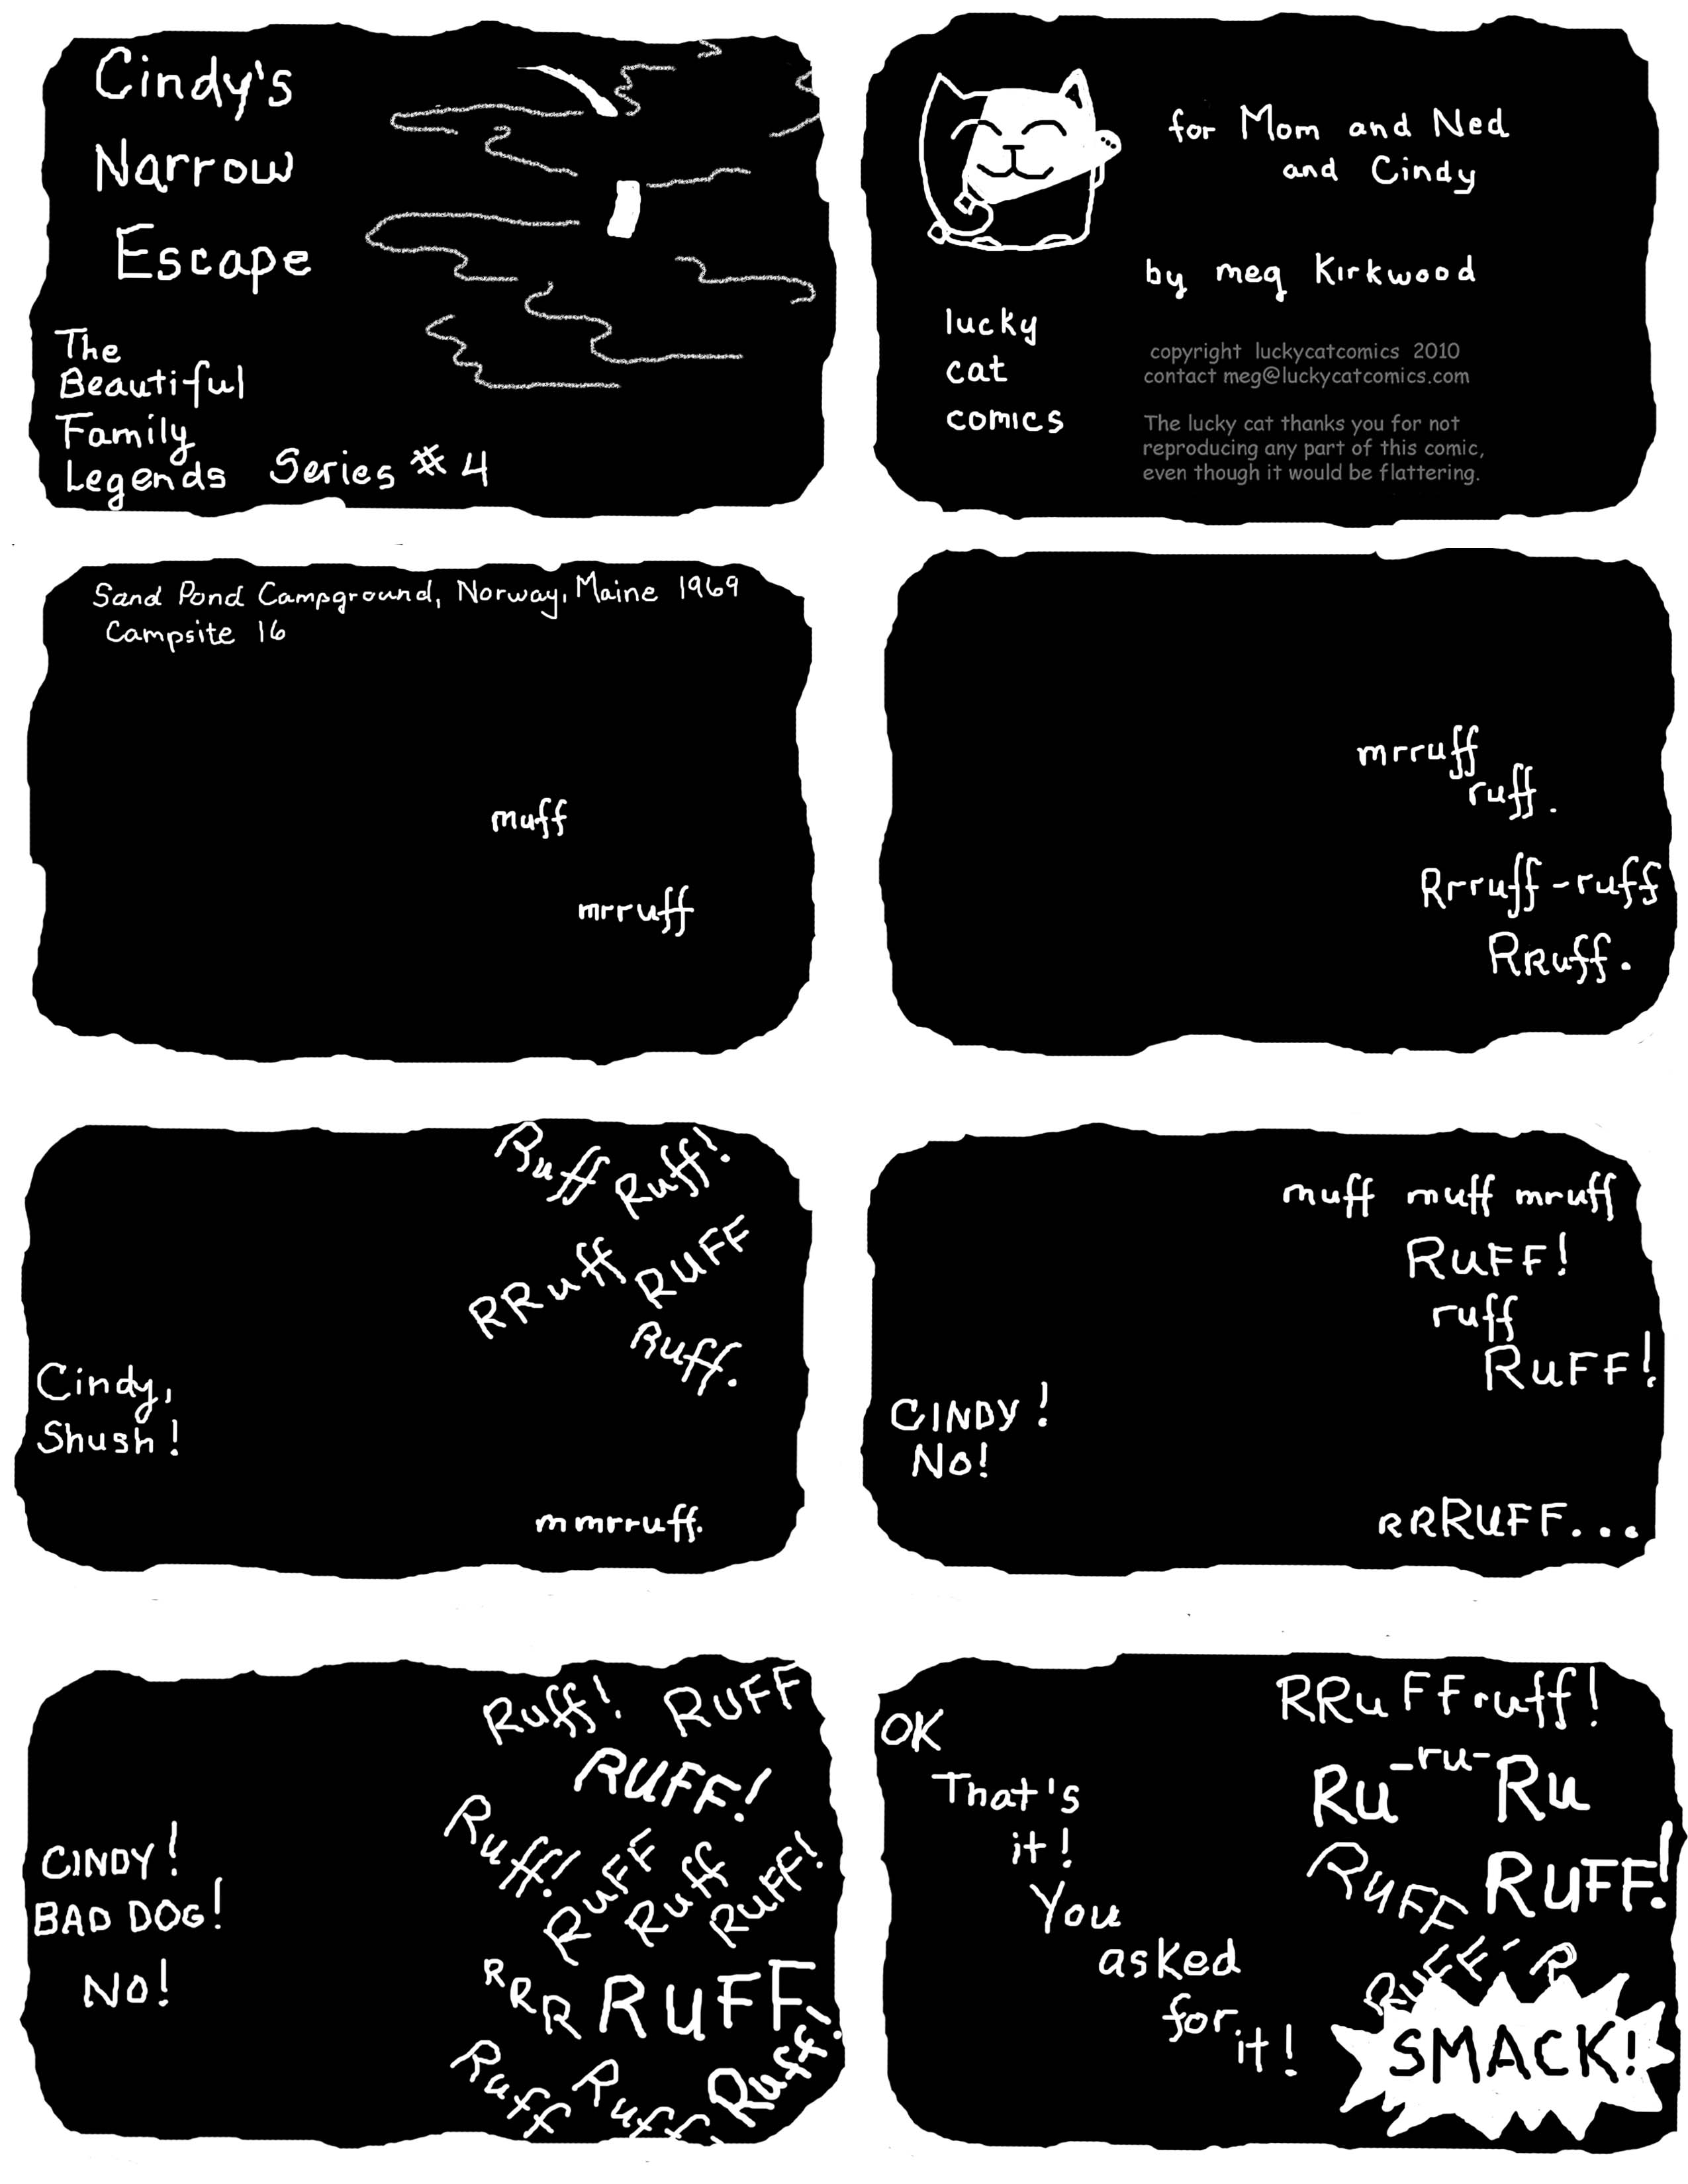 Cindy's
Narrow
Escape
The
Beautiful
Family
Legends Series #4
for Mom and Ned
and Cindy
by meg Kirkwood
lucky
cat
comics
copyright luckycatcomics 2010
contact meg@luckycatcomics.com
The lucky cat thanks you for not
reproducing any part of this comic,
even though it would be flattering.
Sand Pond Campground, Norway, Maine 1969
Campsite 16
muff
mrruff
mrruff
ruff.
Rrruff-ruff
RRuff.
Ruff Ruff!
RRuff RUFF
Ruff.
Cindy,
Shush!
mmrruff.
muff muff mruff
RUFF!
ruff
RUFF!
CINDY!
No!
RRRUFF...
Ruff! RUFF
RUFF!
Ruff! RUFF Ruff RUFF!
CINDY!
BAD DOG!
No!
RRR RUFF
Ruff Ruff. Ruff!
OK
That's
it!
You
asked
for
it!
RRuFFruff!
Ru-ru-Ru
RUFF RUFF!
RUFF-R
SMACK!